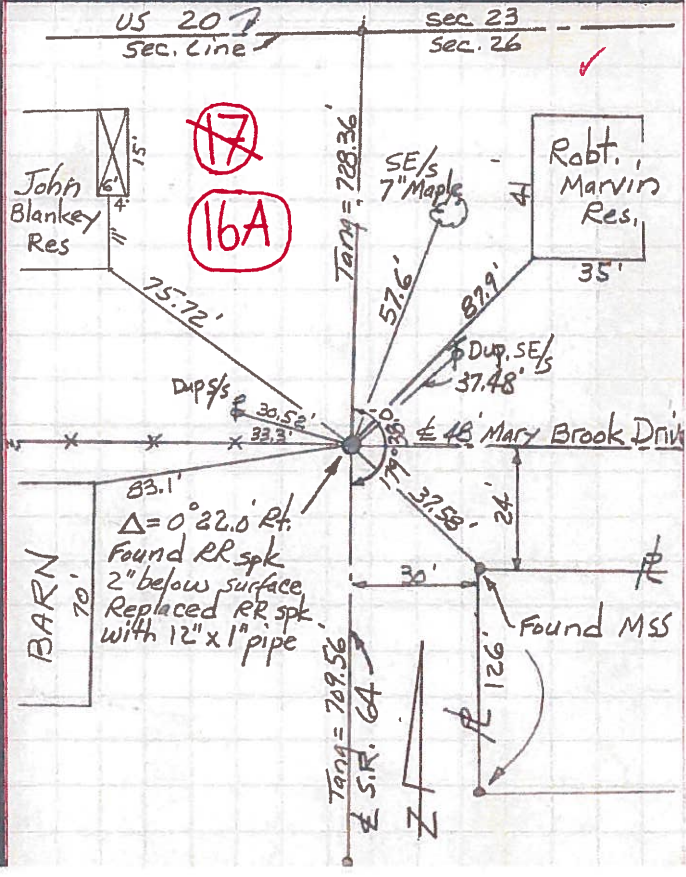 US 20
Sec. Line
Sec 23
Sec. 26
17
16A
John
Blankey
Res
15'
6'
4'
11
Tang = 728.36'
SE/s
7" Maple
Robt.
Marvin
Res.
41
35'
75.72'
57.6'
87.9'
Dup S/s
30.52'
33.3'
Dup. SE/s
37.48'
℄ 48' Mary Brook Driv
179°38.0'
83.1'
37.58'
24'
BARN
70'
Δ = 0°22.0' Rt.
Found RR spk
2" below surface
Replaced RR spk
with 12" x 1" pipe
30'
℄
Found MSS
126'
℄
Tang = 709.56'
℄ S.R. 64
N